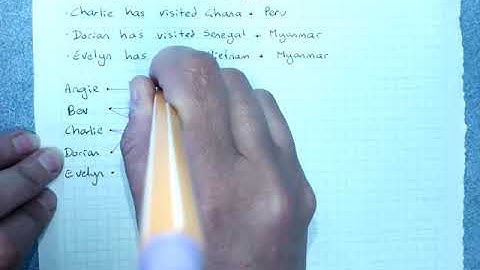 · Charlie has visited Ghana + Peru
· Dorian has visited Senegal + Myanmar
· Evelyn has Vietnam + Myanmar
Angie
Bev
Charlie
Dorian
Evelyn ·